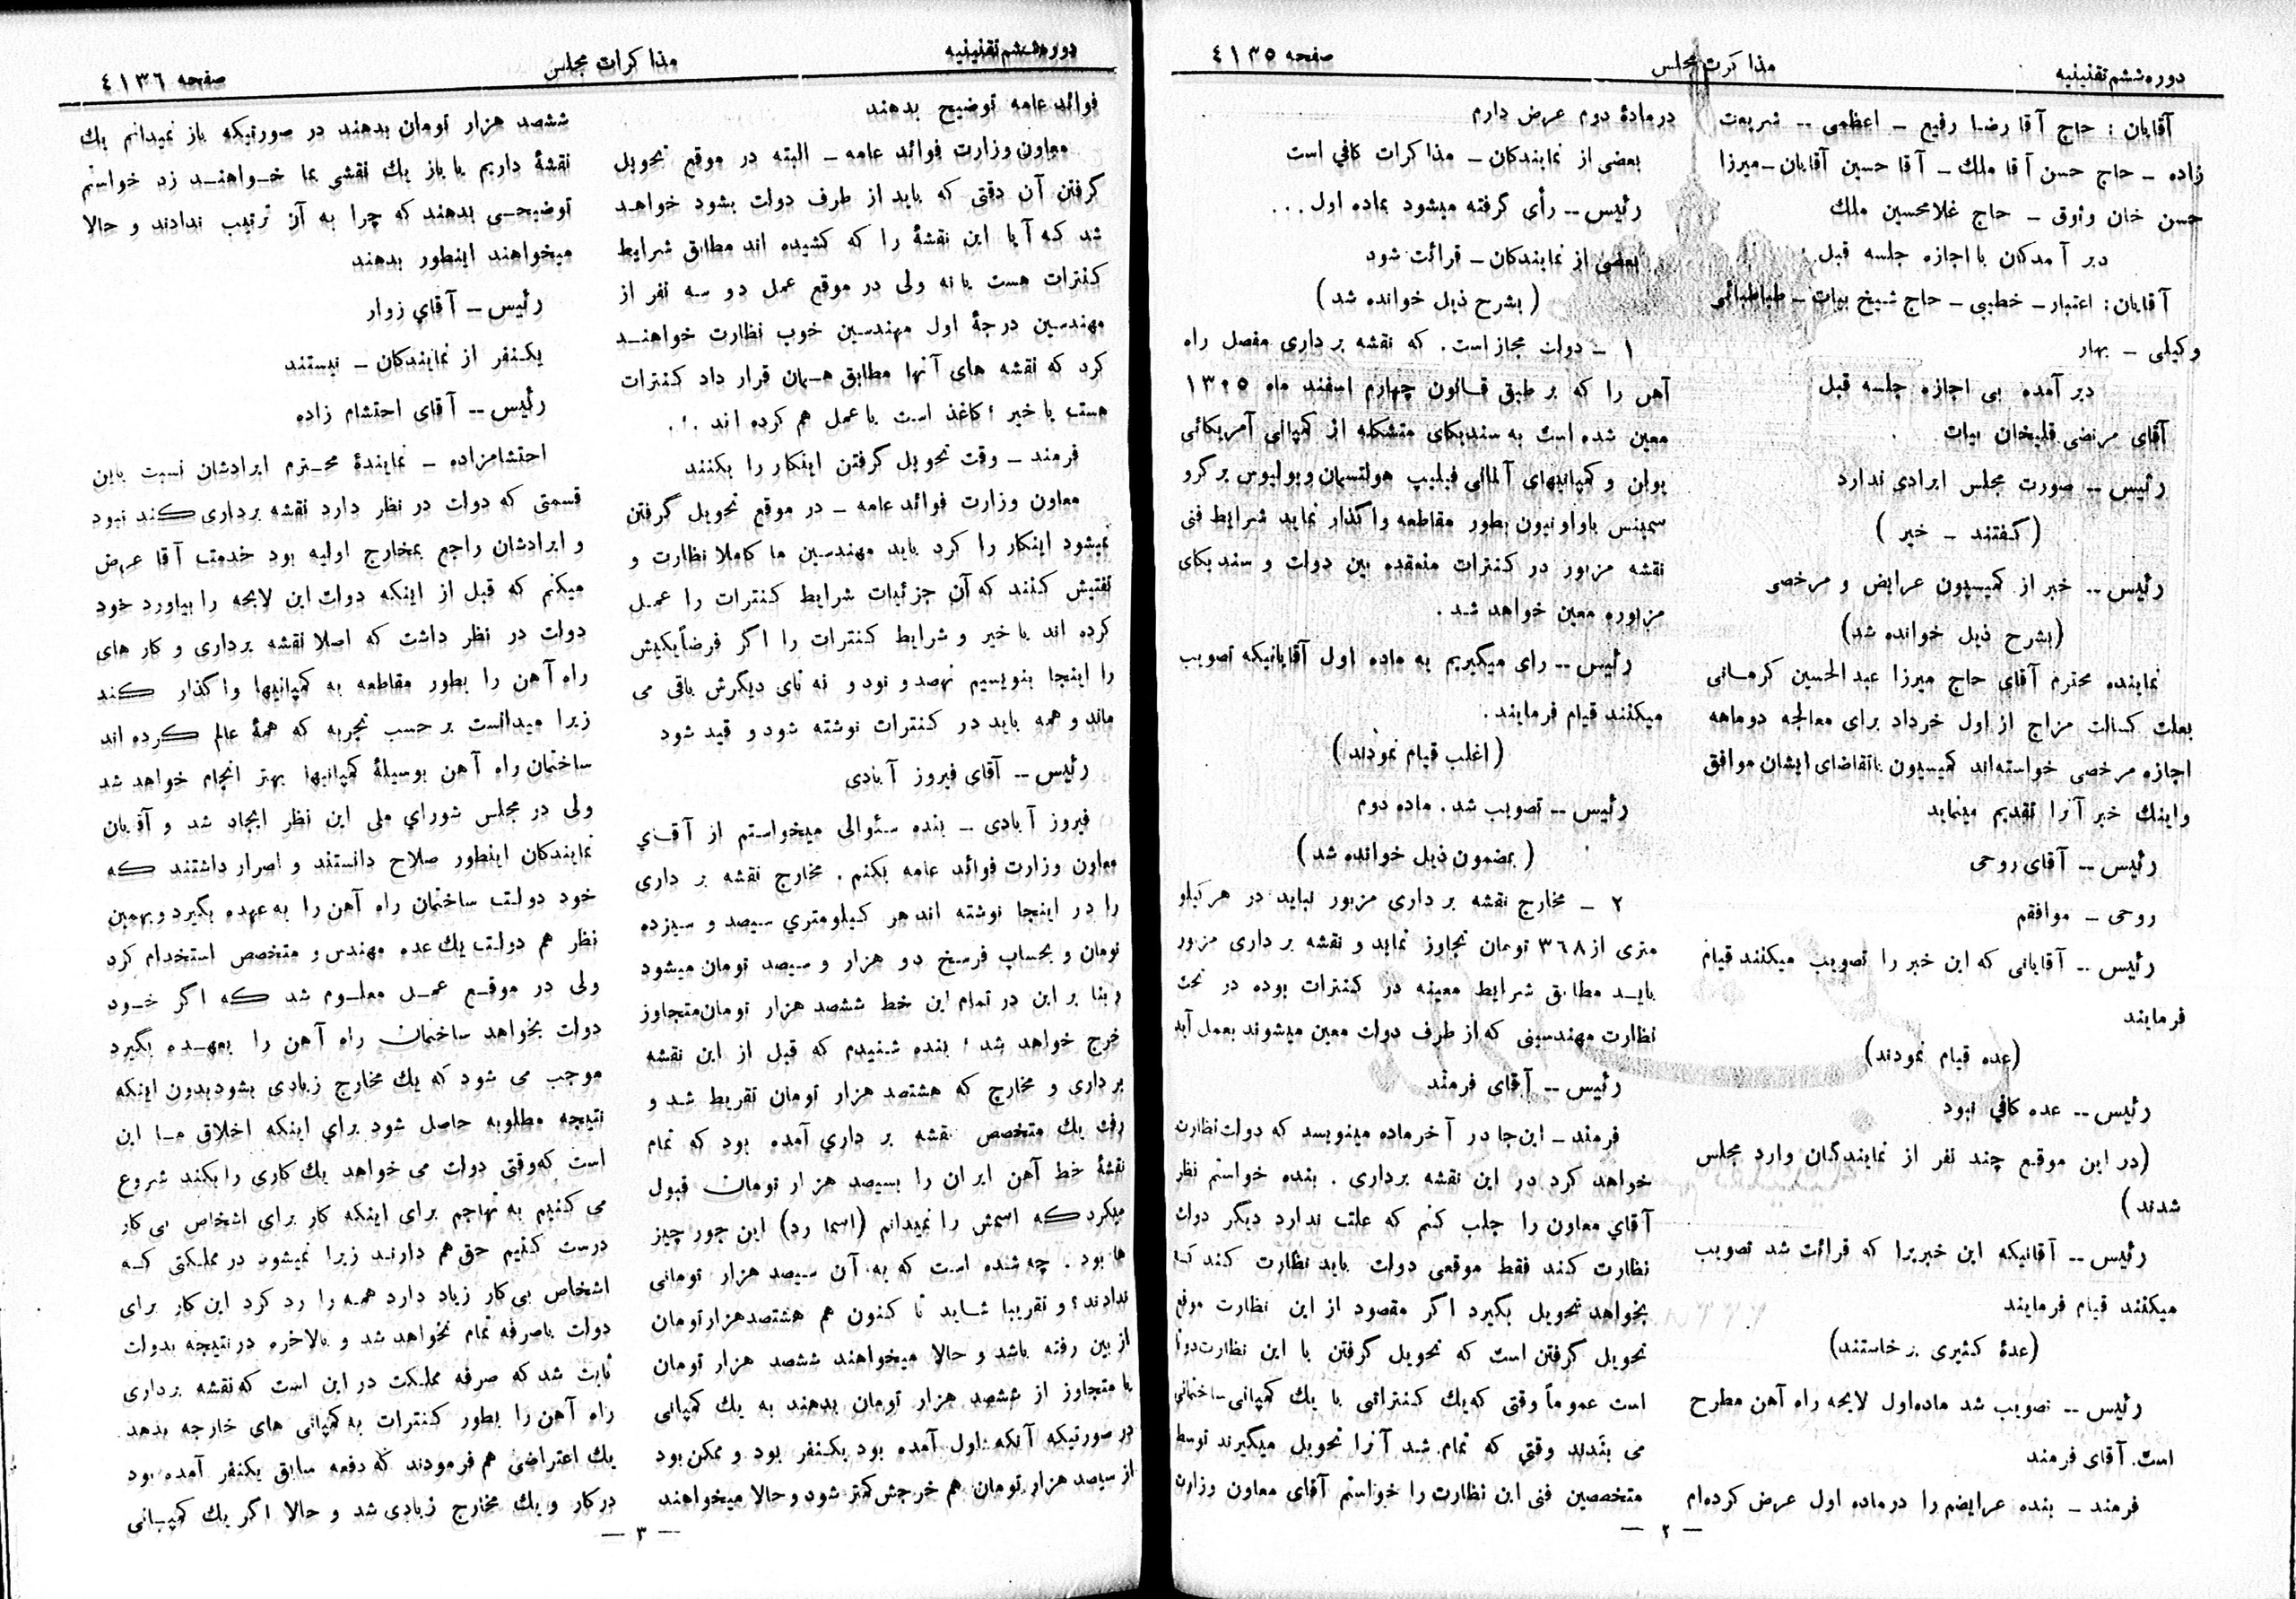 دوره ششم تقنینیه
مذاکرت مجلس
صفحه ٤١٣٥
آقایان : حاج آقا رضا رفیع ــ اعظمی -- شریعت
زاده ــ حاج حسن آقا ملك ــ آقا حسین آقایان ــ میرزا
حسن خان وثوق ــ حاج غلامحسین ملك
دیر آمدگان با اجازه جلسه قبل
آقایان : اعتبار ــ خطیبی ــ حاج شیخ بیات ــ طباطبائی
وکیلی ــ بهار
دیر آمده بی اجازه جلسه قبل
آقای مرتضی قلیخان بیات
رئیس -- صورت مجلس ایرادی ندارد
( گفتند ــ خیر )
رئیس -- خبر از کمیسیون عرایض و مرخصی
(بشرح ذیل خوانده شد)
نماینده محترم آقای حاج میرزا عبدالحسین کرمانی
بعلت کسالت مزاج از اول خرداد برای معالجه دوماهه
اجازه مرخصی خواسته‌اند کمیسیون با تقاضای ایشان موافق
و اینك خبر آنرا تقدیم مینماید
رئیس -- آقای روحی
روحی ــ موافقم
رئیس -- آقایانی که این خبر را تصویب میکنند قیام
فرمایند
(عده قیام نمودند)
رئیس -- عده کافی نبود
(در این موقع چند نفر از نمایندگان وارد مجلس
شدند )
رئیس -- آقانیکه این خبریرا که قرائت شد تصویب
میکنند قیام فرمایند
(عدۀ کثیری برخاستند)
رئیس -- تصویب شد ماده‌اول لایحه راه آهن مطرح
است. آقای فرمند
فرمند ــ بنده عرایضم را در ماده اول عرض کرده‌ام
درمادۀ دوم عرض دارم
بعضی از نمایندکان ــ مذاکرات کافی است
رئیس -- رأی گرفته میشود بماده اول ...
بعضی از نمایندکان ــ قرائت شود
( بشرح ذیل خوانده شد )
١ ــ دولت مجاز است . که نقشه برداری مفصل راه
آهن را که بر طبق قانون چهارم اسفند ماه ١٣٠٥
معین شده است به سندیکای متشکله از کمپانی آمریکائی
یولن و کمپانیهای آلمانی فیلیپ هولتسمان و یولیوس برگرو
سیمنس باواونیون بطور مقاطعه واگذار نماید شرایط فنی
نقشه مزبور در کنترات منعقده بین دولت و سندیکای
مزبوره معین خواهد شد .
رئیس -- رای میگیریم به ماده اول آقایانیکه تصویب
میکنند قیام فرمایند .
( اغلب قیام نمودند )
رئیس -- تصویب شد . ماده دوم
( بمضمون ذیل خوانده شد )
٢ ــ مخارج نقشه برداری مزبور نباید در هر کیلو
متری از ٣٦٨ تومان تجاوز نماید و نقشه برداری مزبور
باید مطابق شرایط معینه در کنترات بوده در تحت
نظارت مهندسینی که از طرف دولت معین میشوند بعمل آید
رئیس -- آقای فرمند
فرمند ــ این‌جا در آخر ماده مینویسد که دولت نظارت
خواهد کرد در این نقشه برداری . بنده خواستم نظر
آقای معاون را جلب کنم که علت ندارد دیگر دولت
نظارت کند فقط موقعی دولت باید نظارت کند که
بخواهد تحویل بگیرد اگر مقصود از این نظارت موقع
تحویل گرفتن است که تحویل گرفتن با این نظارت دوتا
است عموماً وقتی که یك کنتراتی با یك کمپانی ساختمانی
می بندند وقتی که تمام شد آنرا تحویل میگیرند توسط
متخصصین فنی این نظارت را خواستم آقای معاون وزارت
— ٢ —
دوره ششم تقنینیه
مذاکرات مجلس
صفحه ٤١٣٦
فوائد عامه توضیح بدهند
معاون وزارت فوائد عامه ــ البته در موقع تحویل
گرفتن آن دقتی که باید از طرف دولت بشود خواهد
شد که آیا این نقشۀ را که کشیده اند مطابق شرایط
کنترات هست یا نه ولی در موقع عمل دو سه نفر از
مهندسین درجۀ اول مهندسین خوب نظارت خواهند
کرد که نقشه های آنها مطابق همان قرار داد کنترات
هست یا خیر ؛ کاغذ است یا عمل هم کرده اند .
فرمند ــ وقت تحویل گرفتن اینکار را بکنند
معاون وزارت فوائد عامه ــ در موقع تحویل گرفتن
نمیشود اینکار را کرد باید مهندسین ما کاملا نظارت و
تفتیش کنند که آن جزئیات شرایط کنترات را عمل
کرده اند یا خیر و شرایط کنترات را اگر فرضاً یکیش
را اینجا بنویسیم نهصد و نود و نه تای دیگرش باقی می
ماند و همه باید در کنترات نوشته شود و قید شود
رئیس -- آقای فیروز آبادی
فیروز آبادی ــ بنده سئوالی میخواستم از آقای
معاون وزارت فوائد عامه بکنم . مخارج نقشه بر داری
را در اینجا نوشته اند هر کیلومتری سیصد و سیزده
تومان و بحساب فرسخ دو هزار و سیصد تومان میشود
و بنا بر این در تمام این خط ششصد هزار تومان متجاوز
خرج خواهد شد ؛ بنده شنیدم که قبل از این نقشه
برداری و مخارج که هشتصد هزار تومان تفریط شد و
رفت یك متخصص نقشه برداری آمده بود که تمام
نقشۀ خط آهن ایران را بسیصد هزار تومان قبول
میکرد که اسمش را نمیدانم (اسما رد) این جور چیز
ها بود . چه شده است که به آن سیصد هزار تومانی
ندادند ؛ و تقریبا شاید تا کنون هم هشتصد هزار تومان
از بین رفته باشد و حالا میخواهند ششصد هزار تومان
یا متجاوز از ششصد هزار تومان بدهند به یك کمپانی
در صورتیکه آنکه اول آمده بود یکنفر بود و ممکن بود
از سیصد هزار تومان هم خرجش کمتر شود و حالا میخواهند
ششصد هزار تومان بدهند در صورتیکه باز نمیدانم یك
نقشۀ داریم یا باز یك نقشی بما خواهند زد خواستم
توضیحی بدهند که چرا به آن ترتیب ندادند و حالا
میخواهند اینطور بدهند
رئیس -- آقای زوار
یکنفر از نمایندکان ــ نیستند
رئیس -- آقای احتشام زاده
احتشامزاده ــ نمایندۀ محترم ایرادشان نسبت باین
قسمتی که دولت در نظر دارد نقشه برداری کند نبود
و ایرادشان راجع بمخارج اولیه بود خدمت آقا عرض
میکنم که قبل از اینکه دولت این لایحه را بیاورد خود
دولت در نظر داشت که اصلا نقشه برداری و کار های
راه آهن را بطور مقاطعه به کمپانیها واگذار کند
زیرا میدانست بر حسب تجربه که همۀ عالم کرده اند
ساختمان راه آهن بوسیلۀ کمپانیها بهتر انجام خواهد شد
ولی در مجلس شورای ملی این نظر ایجاد شد و آقایان
نمایندکان اینطور صلاح دانستند و اصرار داشتند که
خود دولت ساختمان راه آهن را به عهده بگیرد و بهمین
نظر هم دولت یك عده مهندس و متخصص استخدام کرد
ولی در موقع عمل معلوم شد که اگر خود
دولت بخواهد ساختمان راه آهن را بعهده بگیرد
موجب می شود که یك مخارج زیادی بشود بدون اینکه
نتیجه مطلوبه حاصل شود برای اینکه اخلاق ما این
است که وقتی دولت می خواهد یك کاری را بکند شروع
می کنیم به تهاجم برای اینکه کار برای اشخاص بی کار
درست کنیم حق هم دارند زیرا نمیشود در مملکتی که
اشخاص بی کار زیاد دارد همه را رد کرد این کار برای
دولت باصرفه تمام نخواهد شد و بالاخره در نتیجه بدولت
ثابت شد که صرفه مملکت در این است که نقشه برداری
راه آهن را بطور کنترات به کمپانی های خارجه بدهد
یك اعتراضی هم فرمودند که دفعه سابق یکنفر آمده بود
درکار و یك مخارج زیادی شد و حالا اگر یك کمپانی
— ٣ —